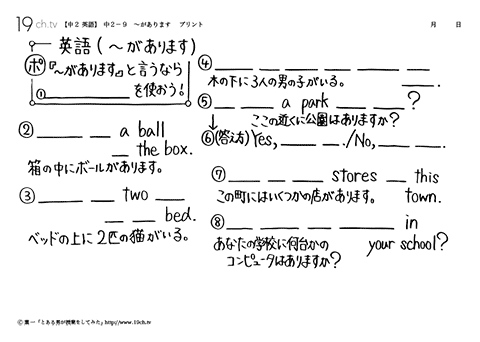 19 ch.tv 【中2 英語】 中2-9 ～があります プリント 月 日
英語(～があります)
ポ 『～があります』と言うなら
① を使おう!
② a ball
the box.
箱の中にボールがあります。
③ two
bed.
ベッドの上に2匹の猫がいる。
④
木の下に3人の男の子がいる。
⑤ a park ?
ここの近くに公園はありますか?
⑥(答え方) Yes, ./No, .
⑦ stores this
この町にはいくつかの店があります。 town.
⑧ in
あなたの学校に何台かの your school?
コンピュータはありますか?
Ⓒ 葉一「とある男が授業をしてみた」http://www.19ch.tv